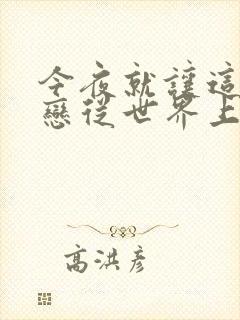 今夜就讓這
戀從世界上
高洪彥